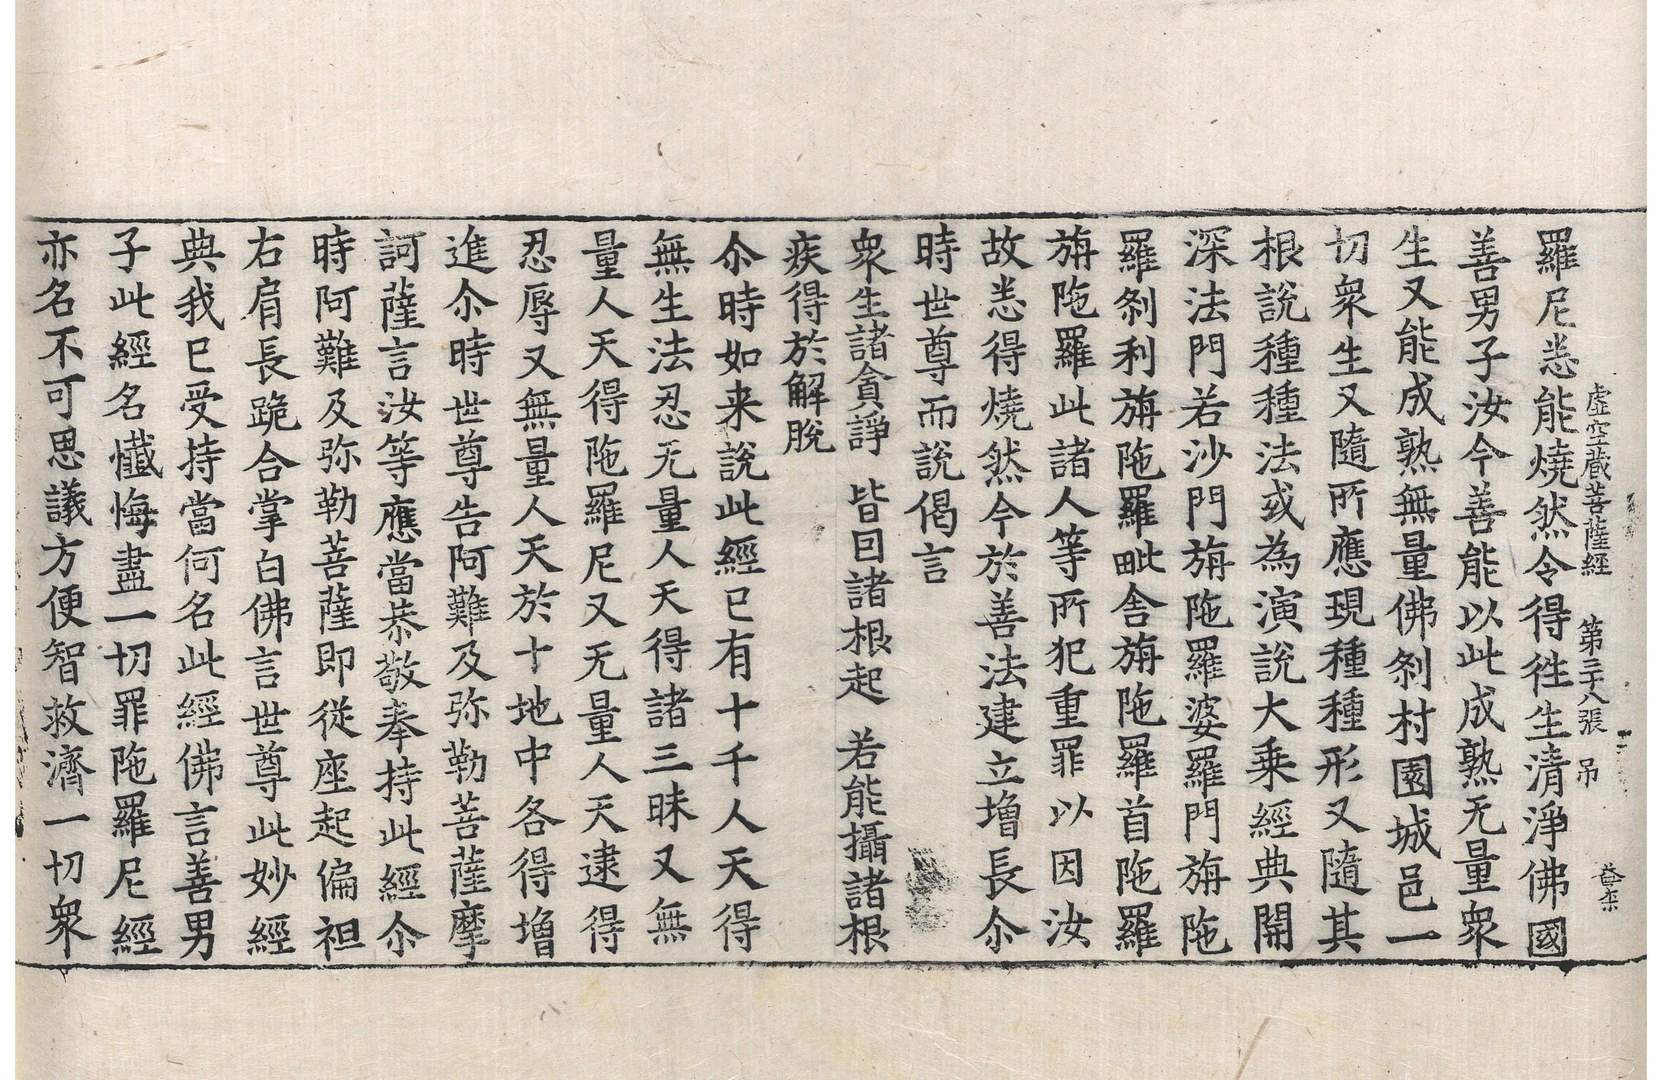 虛空藏菩薩經 第三十八張 吊
羅尼悉能燒然令得徃生清淨佛國
善男子汝今善能以此成熟无量衆
生又能成熟無量佛刹村園城邑一
切衆生又隨所應現種種形又隨其
根說種種法或為演說大乗經典開
深法門若沙門旃陁羅婆羅門旃陁
羅刹利旃陁羅毗舍旃陁羅首陁羅
旃陁羅此諸人等所犯重罪以因汝
故悉得燒然今於善法建立增長尒
時世尊而說偈言
衆生諸貪諍 皆因諸根起 若能攝諸根
疾得於解脫
尒時如来說此經已有十千人天得
無生法忍无量人天得諸三昧又無
量人天得陁羅尼又无量人天逮得
忍辱又無量人天於十地中各得增
進尒時世尊告阿難及弥勒菩薩摩
訶薩言汝等應當恭敬奉持此經尒
時阿難及弥勒菩薩即從座起偏袒
右肩長跪合掌白佛言世尊此妙經
典我已受持當何名此經佛言善男
子此經名懺悔盡一切罪陁羅尼經
亦名不可思議方便智救濟一切衆